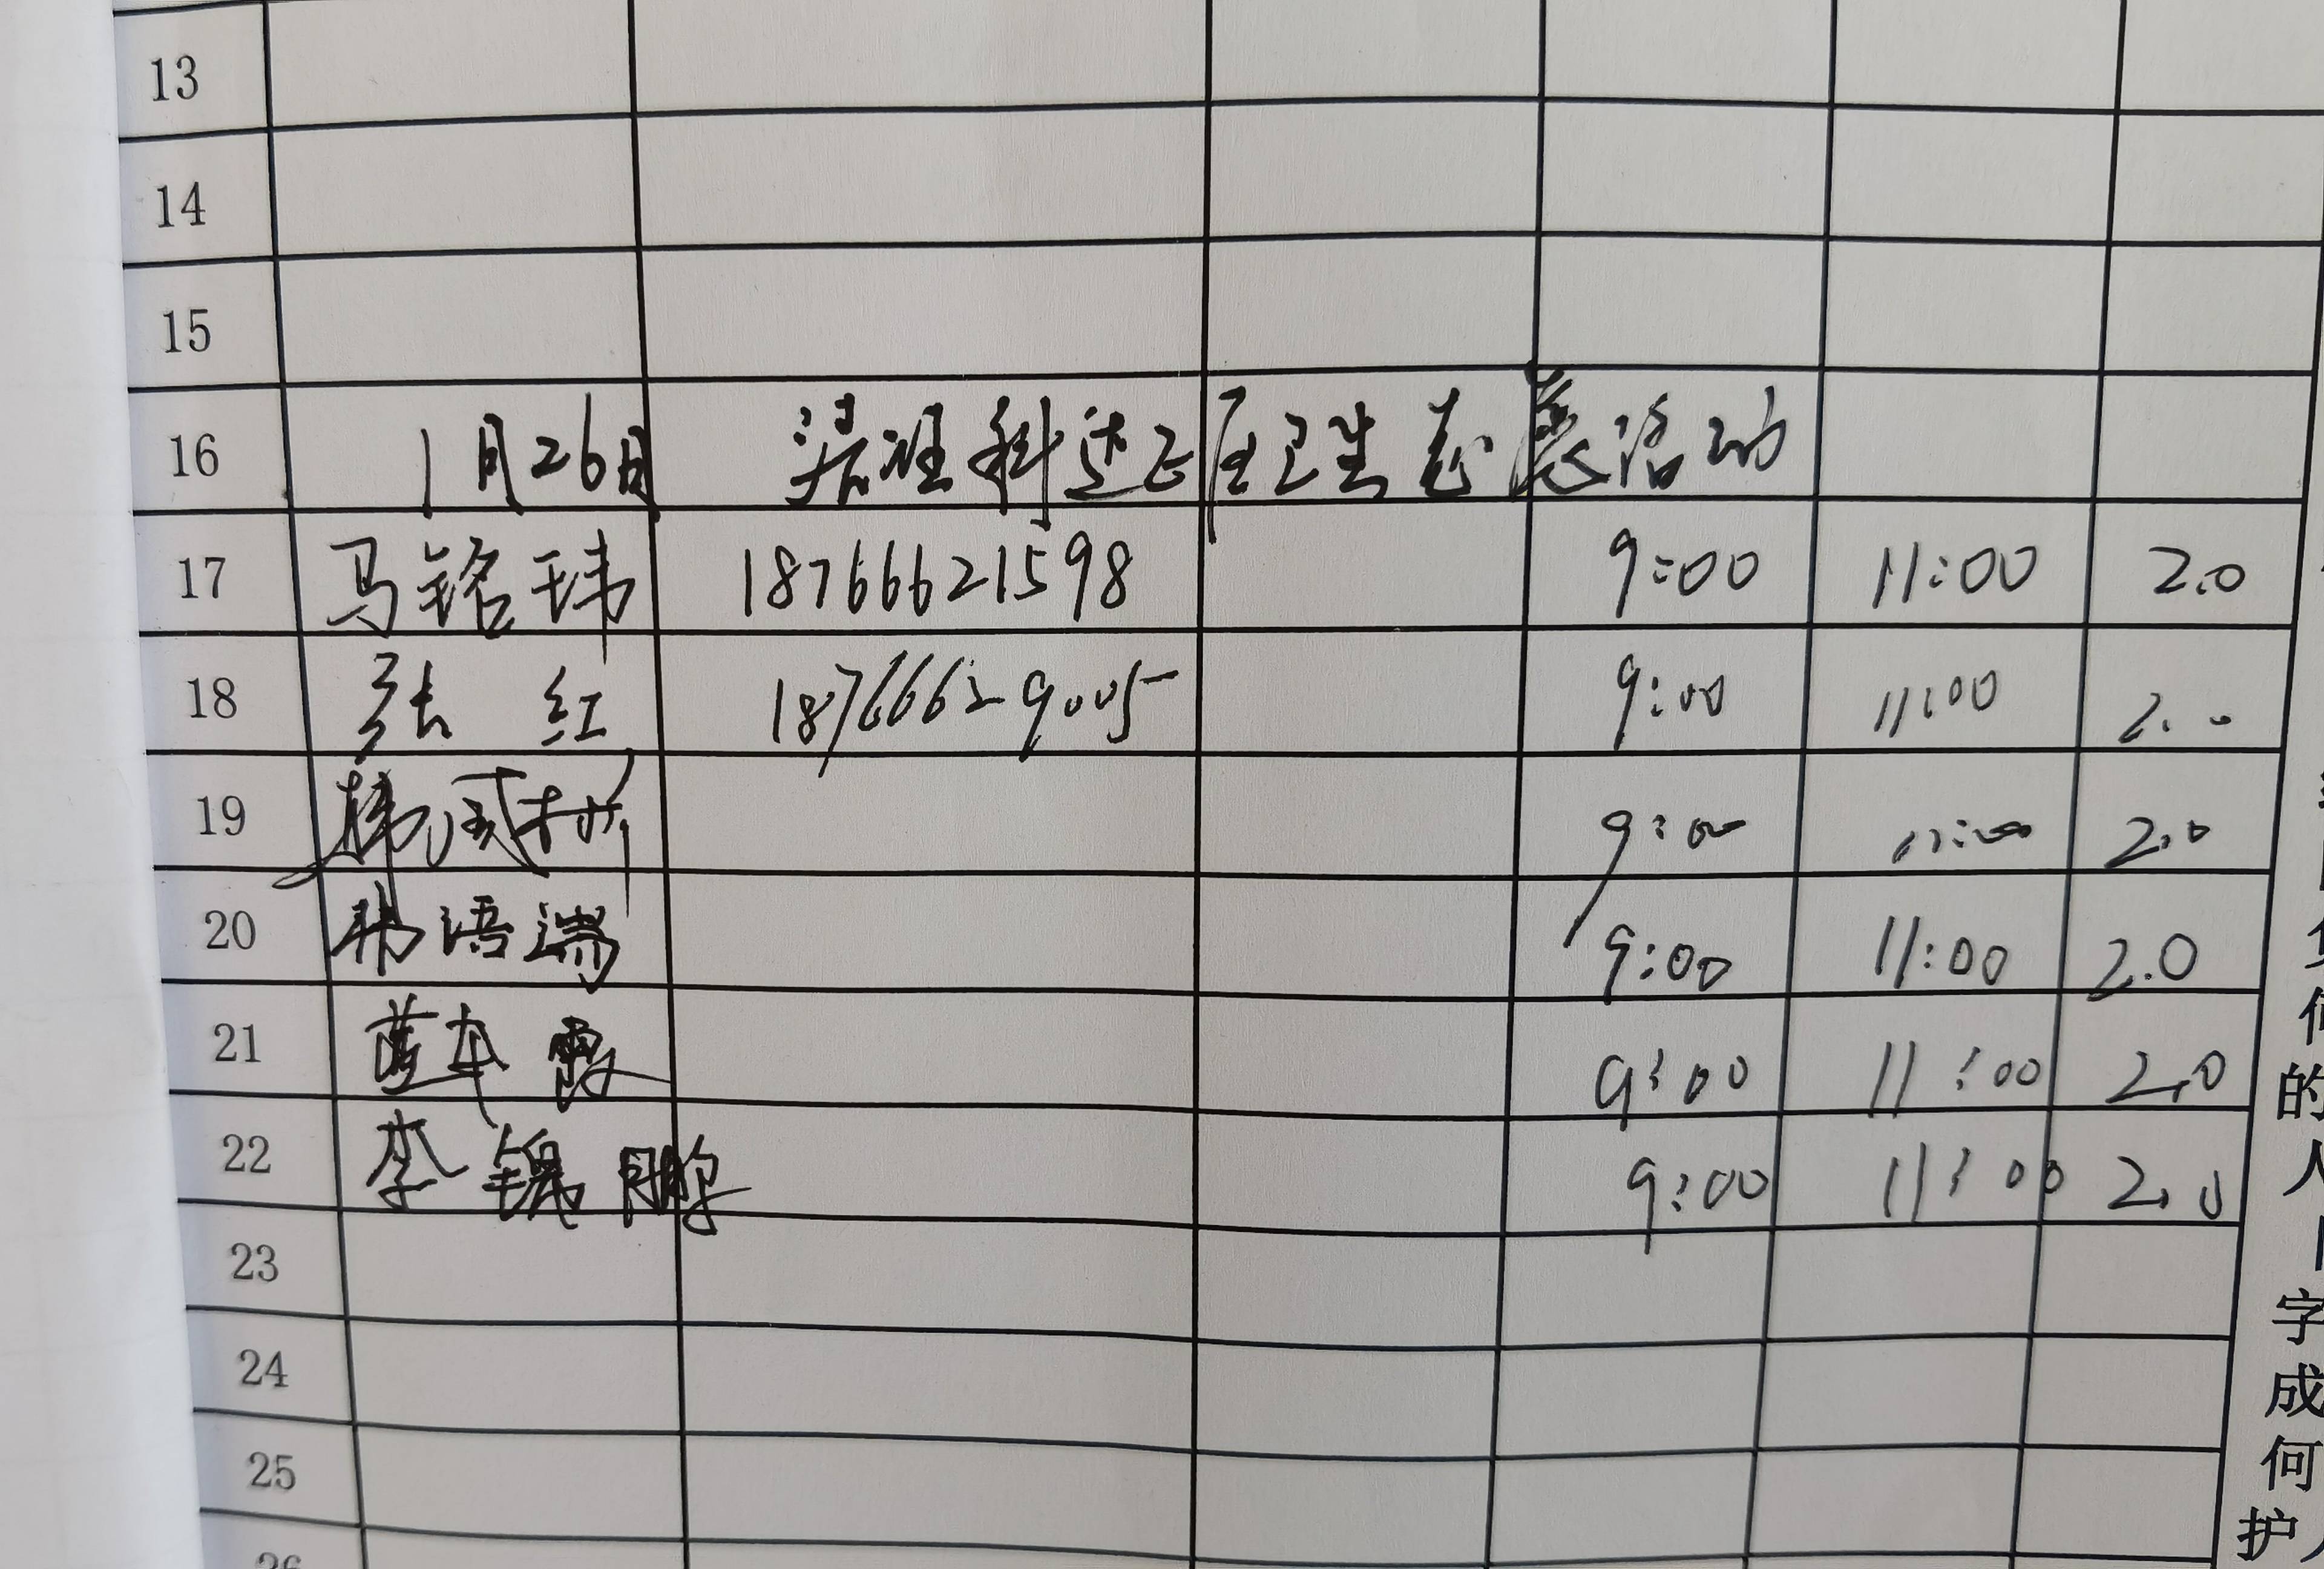 13
14
15
16 1月26日 渠理科进 卫生志愿活动
17 马铭玮 18766621598 9:00 11:00 2.0
18 张红 18766629005 9:00 11:00 2.0
19 韩 9:00 11:00 2.0
20 韩语端 9:00 11:00 2.0
21 霞 9:00 11:00 2.0
22 李锟鹏 9:00 11:00 2.0
23
24
25
26
的
人
字
成
何
护